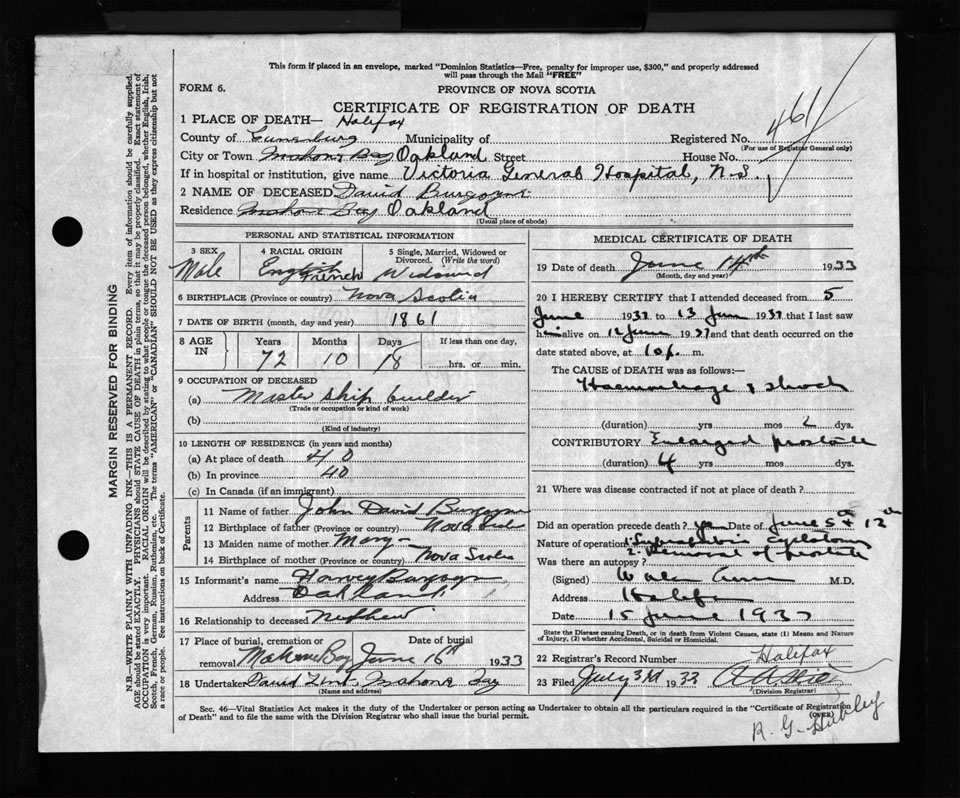 This form if placed in an envelope, marked "Dominion Statistics—Free, penalty for improper use, $300," and properly addressed
will pass through the Mail "FREE"
FORM 6.
PROVINCE OF NOVA SCOTIA
CERTIFICATE OF REGISTRATION OF DEATH
1 PLACE OF DEATH— Halifax
County of Lunenburg Municipality of Registered No. 461
(For use of Registrar General only)
City or Town Mahone Bay Oakland Street House No.
If in hospital or institution, give name Victoria General Hospital, N.S.
2 NAME OF DECEASED David Burgoyne
Residence Mahone Bay Oakland
(Usual place of abode)
PERSONAL AND STATISTICAL INFORMATION
3 SEX 4 RACIAL ORIGIN 5 Single, Married, Widowed or
Divorced. (Write the word)
Male English French Widowed
6 BIRTHPLACE (Province or country) Nova Scotia
7 DATE OF BIRTH (month, day and year) 1861
8 AGE IN Years Months Days If less than one day,
72 10 18 hrs. or min.
9 OCCUPATION OF DECEASED
(a) Master Ship builder
(Trade or occupation or kind of work)
(b)
(Kind of industry)
10 LENGTH OF RESIDENCE (in years and months)
(a) At place of death 40
(b) In province 40
(c) In Canada (if an immigrant)
Parents
11 Name of father John David Burgoyne
12 Birthplace of father (Province or country) Nova Scotia
13 Maiden name of mother Mary —
14 Birthplace of mother (Province or country) Nova Scotia
15 Informant's name Harvey Burgoyne
Address Oakland
16 Relationship to deceased Nephew
17 Place of burial, cremation or Date of burial
removal Mahone Bay June 16th 1933
18 Undertaker David Mahone Bay
(Name and address)
MEDICAL CERTIFICATE OF DEATH
19 Date of death June 14th 1933
(Month, day and year)
20 I HEREBY CERTIFY that I attended deceased from 5
June 193 to 13 June 193 that I last saw
him alive on 12 June 193 and that death occurred on
date stated above, at 10 p. m.
The CAUSE of DEATH was as follows:
Haemorrhage & shock
(duration) yrs mos 2 dys.
CONTRIBUTORY Enlarged prostate
(duration) 4 yrs mos. dys.
21 Where was disease contracted if not at place of death?
Did an operation precede death? yes Date of June 5th & 12th
Nature of operation 1. Suprapubic cystotomy
2. Removal of prostate
Was there an autopsy?
(Signed) M.D.
Address Halifax
Date 15 June 193
State the Disease causing Death, or in death from Violent Causes, state (1) Means and Nature
of Injury, (2) whether Accidental, Suicidal or Homicidal.
22 Registrar's Record Number Halifax
23 Filed July 3rd 1933
(Division Registrar)
Sec. 46—Vital Statistics Act makes it the duty of the Undertaker or person acting as Undertaker to obtain all the particulars required in the "Certificate of Registration
of Death" and to file the same with the Division Registrar who shall issue the burial permit.
(OVER)
R. G. Hubley
MARGIN RESERVED FOR BINDING
N.B.—WRITE PLAINLY WITH UNFADING INK—THIS IS A PERMANENT RECORD. Every item of information should be carefully supplied.
AGE should be stated EXACTLY. PHYSICIANS should STATE CAUSE OF DEATH in plain terms, so that it may be properly classified. Exact statement of
OCCUPATION is very important. RACIAL ORIGIN will be described by stating to what people or tongue the deceased person belonged, whether English, Irish,
Scotch, French, German, Russian, Ruthenian, etc. The terms "AMERICAN" or "CANADIAN" SHOULD NOT BE USED as they express citizenship but not
a race or people. See instructions on back of Certificate.